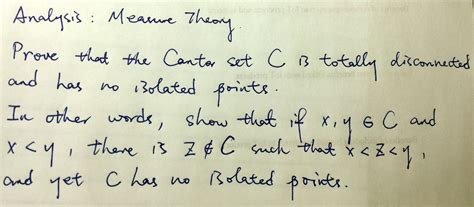 Analysis : Measure Theory.
Prove that the Cantor set C is totally disconnected
and has no isolated points.
In other words, show that if x, y ∈ C and
x < y , there is z ∉ C such that x < z < y ,
and yet C has no isolated points.